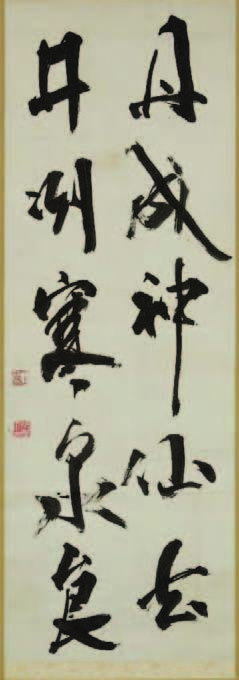 丹成神仙去
井冽寒泉食